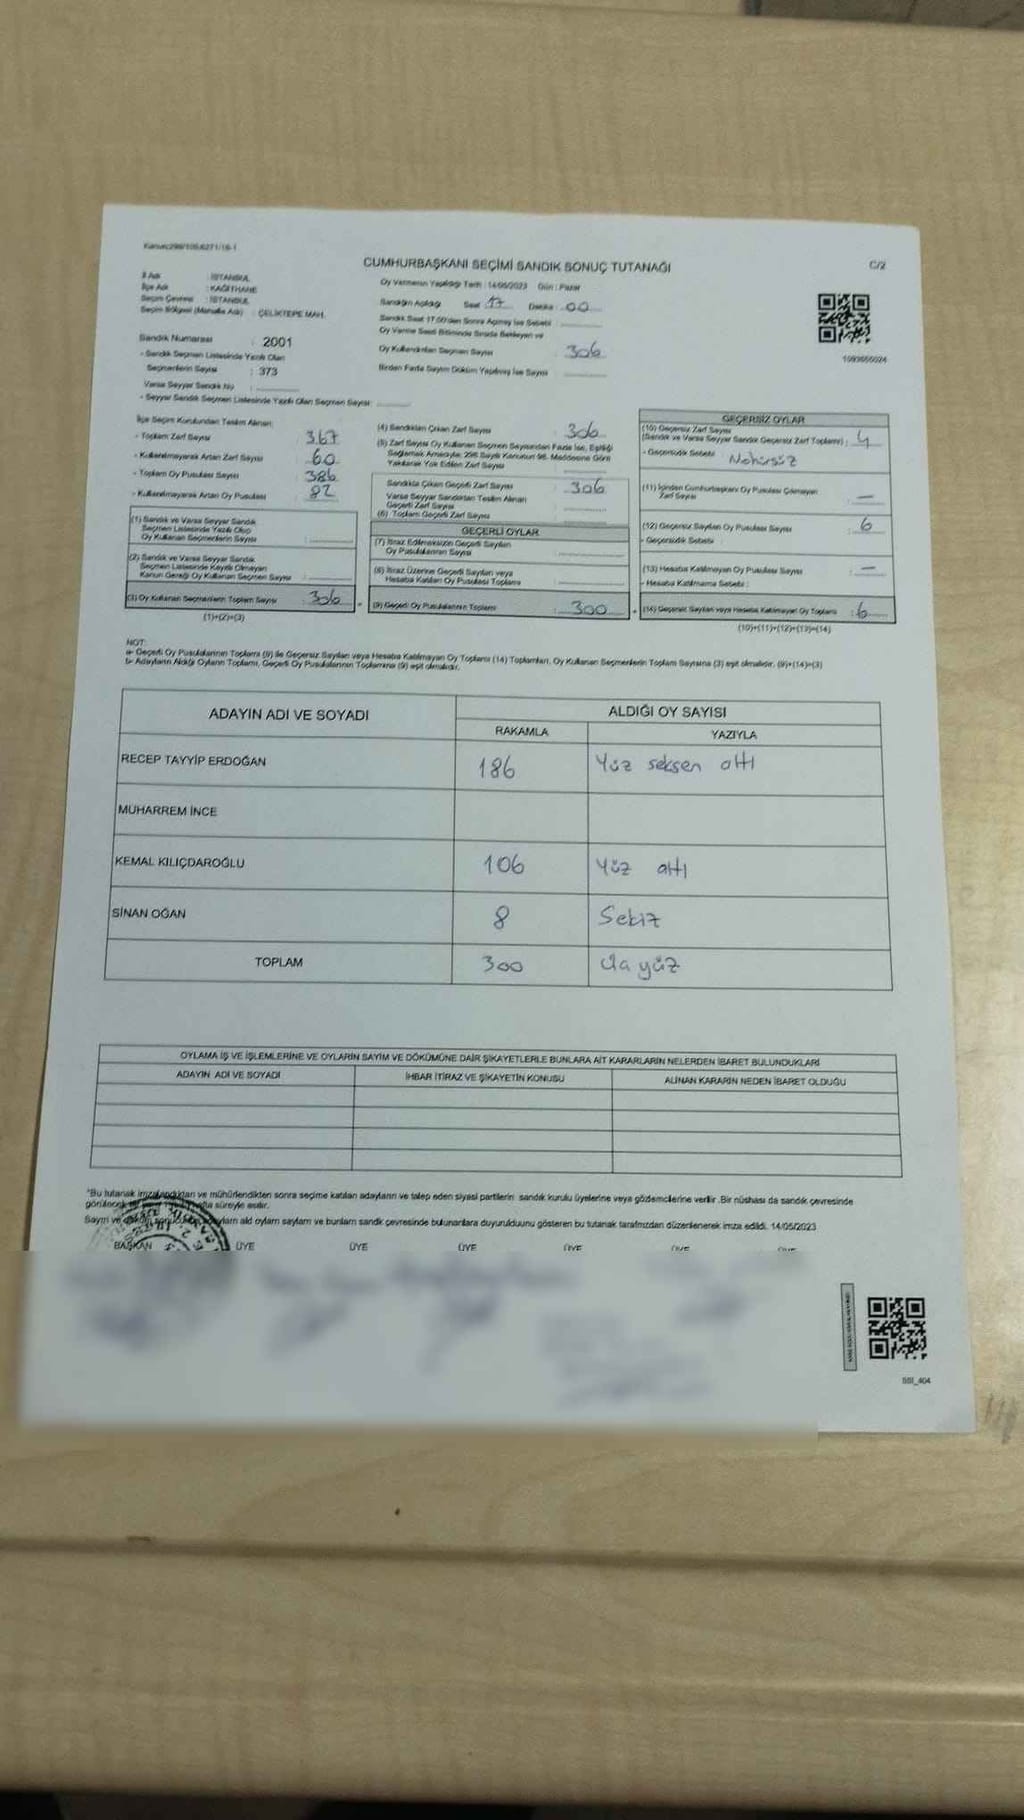 Kanun:298/105,6271/16-1
CUMHURBAŞKANI SEÇİMİ SANDIK SONUÇ TUTANAĞI
C/2
İl Adı : İSTANBUL
İlçe Adı : KAĞITHANE
Seçim Çevresi : İSTANBUL
Seçim Bölgesi (Mahalle Adı) : ÇELİKTEPE MAH.
Oy Vermenin Yapıldığı Tarih : 14/05/2023 Gün : Pazar
Sandığın Açıldığı Saat 17 Dakika : 00
Sandık Saat 17:00'den Sonra Açılmış İse Sebebi :
Oy Verme Saati Bitiminde Sırada Bekleyen ve
Oy Kullandırılan Seçmen Sayısı : 306
Birden Fazla Sayım Döküm Yapılmış İse Sayısı
Sandık Numarası : 2001
- Sandık Seçmen Listesinde Yazılı Olan
Seçmenlerin Sayısı : 373
Varsa Seyyar Sandık No :
- Seyyar Sandık Seçmen Listesinde Yazılı Olan Seçmen Sayısı:
İlçe Seçim Kurulundan Teslim Alınan;
- Toplam Zarf Sayısı 367
- Kullanılmayarak Artan Zarf Sayısı 60
- Toplam Oy Pusulası Sayısı 386
- Kullanılmayarak Artan Oy Pusulası 82
(1) Sandık ve Varsa Seyyar Sandık
Seçmen Listesinde Yazılı Olup
Oy Kullanan Seçmenlerin Sayısı :
(2) Sandık ve Varsa Seyyar Sandık
Seçmen Listesinde Kayıtlı Olmayan
Kanun Gereği Oy Kullanan Seçmen Sayısı :
(3) Oy Kullanan Seçmenlerin Toplam Sayısı : 306
(1)+(2)=(3)
(4) Sandıktan Çıkan Zarf Sayısı : 306
(5) Zarf Sayısı Oy Kullanan Seçmen Sayısından Fazla İse, Eşitliği
Sağlamak Amacıyla; 298 Sayılı Kanunun 98. Maddesine Göre
Yakılarak Yok Edilen Zarf Sayısı
Sandıkta Çıkan Geçerli Zarf Sayısı : 306
Varsa Seyyar Sandıktan Teslim Alınan
Geçerli Zarf Sayısı
(6) Toplam Geçerli Zarf Sayısı
GEÇERLİ OYLAR
(7) İtiraz Edilmeksizin Geçerli Sayılan
Oy Pusulalarının Sayısı
(8) İtiraz Üzerine Geçerli Sayılan veya
Hesaba Katılan Oy Pusulası Toplamı
(9) Geçerli Oy Pusulalarının Toplamı : 300
GEÇERSİZ OYLAR
(10) Geçersiz Zarf Sayısı
(Sandık ve Varsa Seyyar Sandık Geçersiz Zarf Toplamı) : 4
- Geçersizlik Sebebi : Mühürsüz
(11) İçinden Cumhurbaşkanı Oy Pusulası Çıkmayan
Zarf Sayısı : —
(12) Geçersiz Sayılan Oy Pusulası Sayısı : 6
- Geçersizlik Sebebi :
(13) Hesaba Katılmayan Oy Pusulası Sayısı : —
- Hesaba Katılmama Sebebi :
(14) Geçersiz Sayılan veya Hesaba Katılmayan Oy Toplamı : 6
(10)+(11)+(12)+(13)=(14)
1093656024
NOT:
a- Geçerli Oy Pusulalarının Toplamı (9) ile Geçersiz Sayılan veya Hesaba Katılmayan Oy Toplamı (14) Toplamları, Oy Kullanan Seçmenlerin Toplam Sayısına (3) eşit olmalıdır. (9)+(14)=(3)
b- Adayların Aldığı Oyların Toplamı, Geçerli Oy Pusulalarının Toplamına (9) eşit olmalıdır.
ADAYIN ADI VE SOYADI
ALDIĞI OY SAYISI
RAKAMLA YAZIYLA
RECEP TAYYİP ERDOĞAN 186 Yüz seksen altı
MUHARREM İNCE
KEMAL KILIÇDAROĞLU 106 Yüz altı
SİNAN OĞAN 8 Sekiz
TOPLAM 300 üç yüz
OYLAMA İŞ VE İŞLEMLERİNE VE OYLARIN SAYIM VE DÖKÜMÜNE DAİR ŞİKAYETLERLE BUNLARA AİT KARARLARIN NELERDEN İBARET BULUNDUKLARI
ADAYIN ADI VE SOYADI İHBAR İTİRAZ VE ŞİKAYETİN KONUSU ALINAN KARARIN NEDEN İBARET OLDUĞU
"Bu tutanak imzalandıktan ve mühürlendikten sonra seçime katılan adayların ve talep eden siyasi partilerin sandık kurulu üyelerine veya gözlemcilerine verilir. Bir nüshası da sandık çevresinde
görülecek süreyle asılır.
Sayım ve oyların ald oyların sayılarını ve bunların sandık çevresinde bulunanlara duyurulduunu gösteren bu tutanak tarafımızdan düzenlenerek imza edildi. 14/05/2023
BAŞKAN ÜYE ÜYE ÜYE ÜYE ÜYE ÜYE
SSI_404